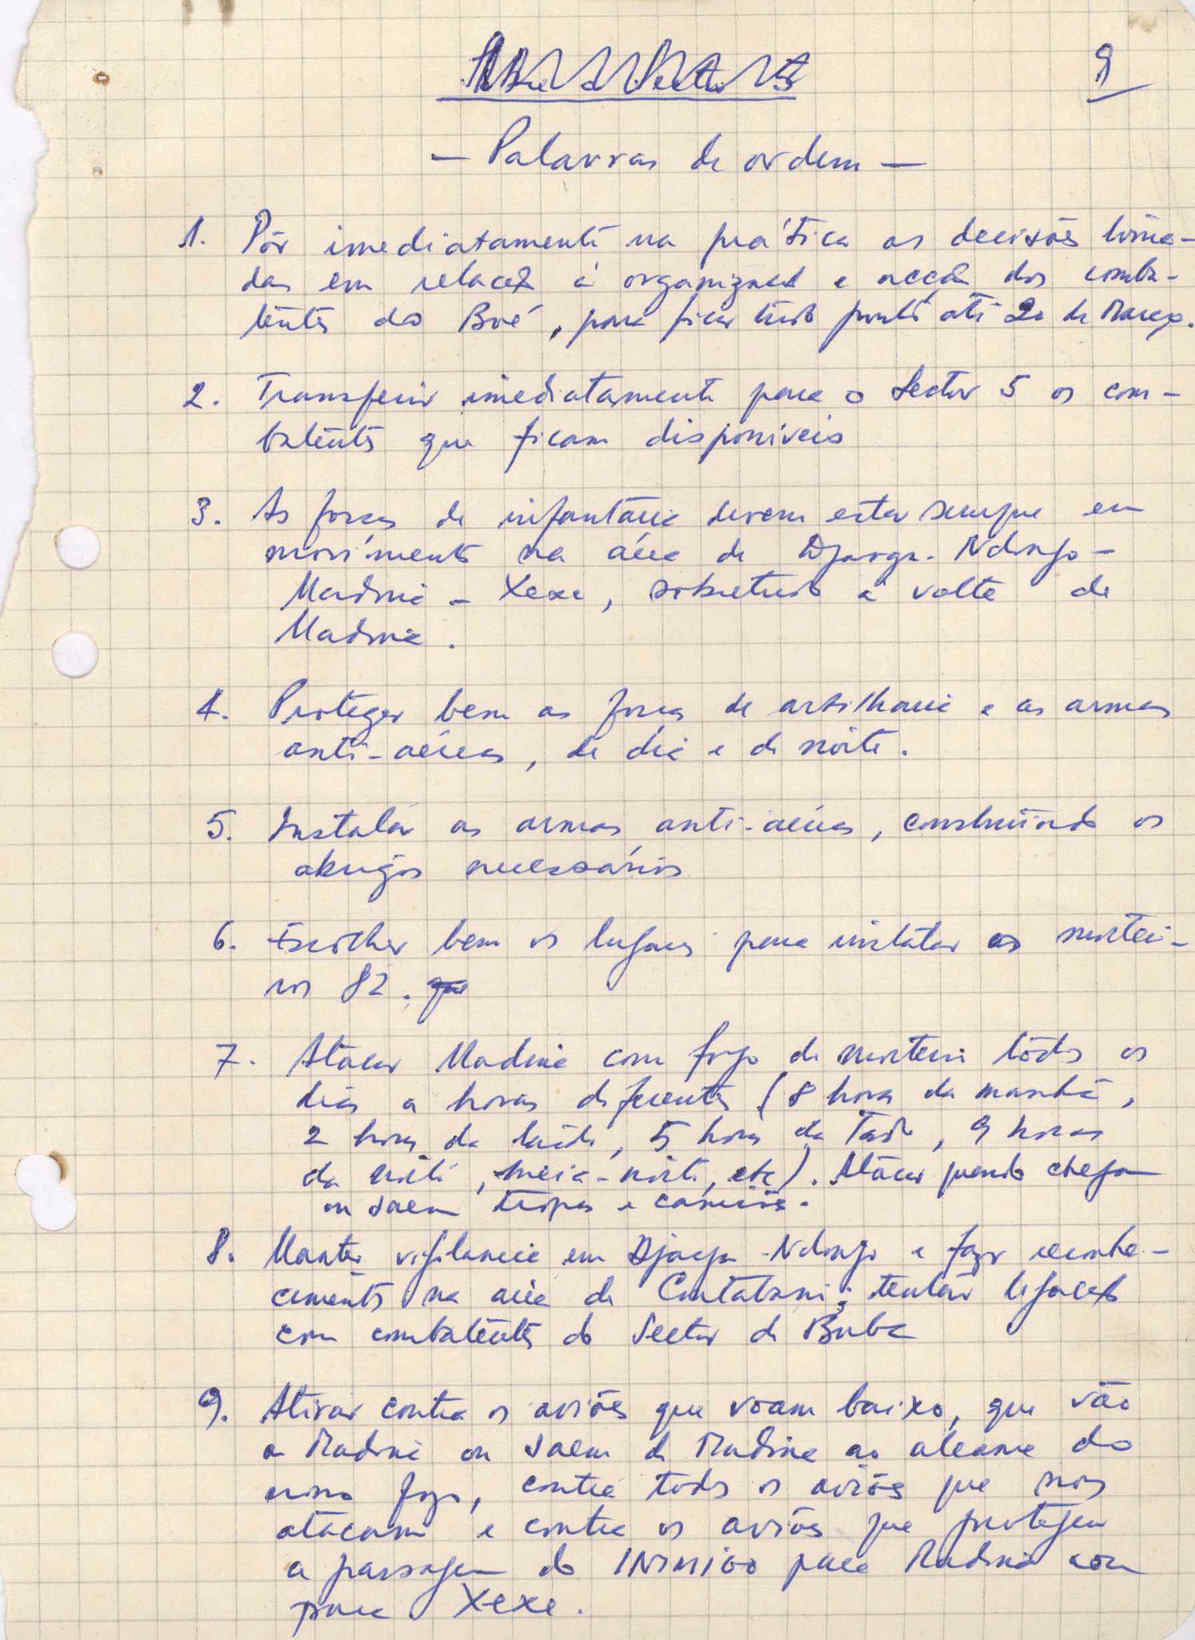 9
— Palavras de ordem —
1. Pôr imediatamente na prática as decisões toma-
das em relação à organização e acção dos comba-
tentes do Boé, para ficar tudo pronto até 20 de Março.
2. Transferir imediatamente para o Sector 5 os com-
batentes que ficam disponíveis
3. As forças de infantaria devem estar sempre em
movimento na área de Djarga-Ndongo-
Madina - Xexe, sobretudo à volta de
Madina.
4. Proteger bem as forças de artilharia e as armas
anti-aéreas, de dia e de noite.
5. Instalar as armas anti-aéreas, construindo os
abrigos necessários
6. Escolher bem os lugares para instalar os mortei-
ros 82.
7. Atacar Madina com fogo de morteiro todos os
dias a horas diferentes (8 horas da manhã,
2 horas da tarde, 5 horas da Tarde, 9 horas
da noite, meia-noite, etc). Atacar quando chegam
ou saem tropas e camiões.
8. Manter vigilância em Djarga-Ndongo e fazer reconhe-
cimentos na área de Contabani; tentar ligação
com combatentes do Sector de Buba
9. Atirar contra os aviões que voam baixo, que vão
a Madina ou saem de Madina ao alcance do
nosso fogo, contra todos os aviões que nos
atacam e contra os aviões que protegem
a passagem do INIMIGO para Madina com
para Xexe.